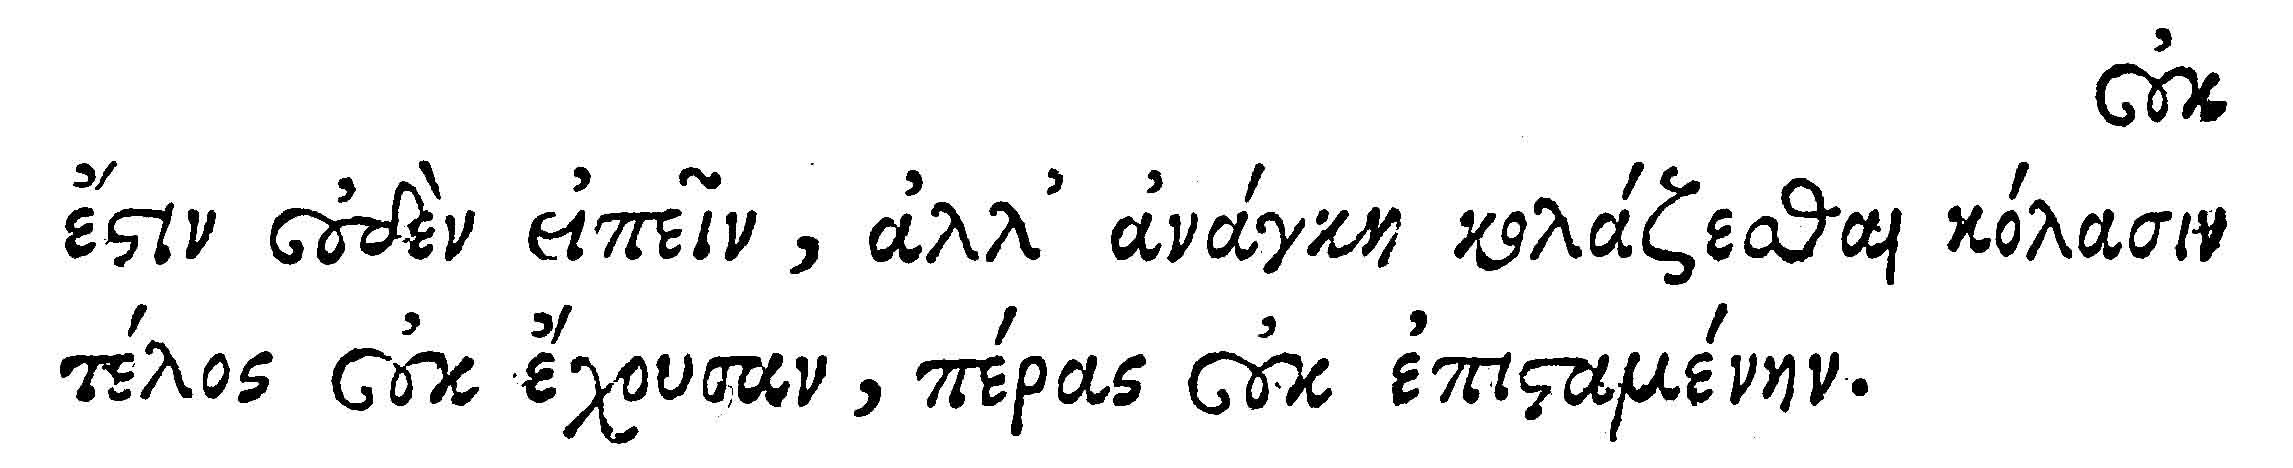 οὐκ
ἔστιν οὐδὲν εἰπεῖν, ἀλλ' ἀνάγκη κολάζεσθαι κόλασιν
τέλος οὐκ ἔχουσαν, πέρας οὐκ ἐπισταμένην.